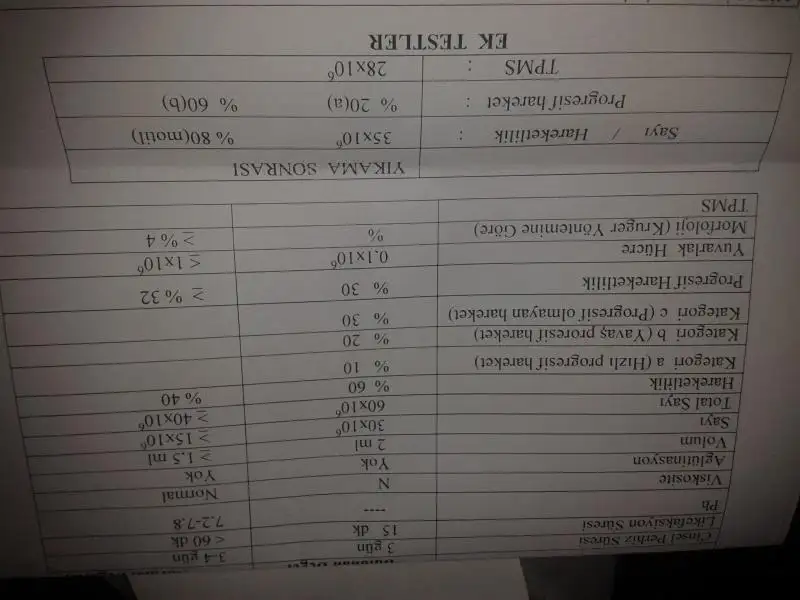 Cinsel Perhiz Süresi 3 gün 3-4 gün
Likefaksiyon Süresi 15 dk < 60 dk
Ph ---- 7.2-7.8
Viskosite N Normal
Aglütinasyon Yok Yok
Volum 2 ml ≥ 1.5 ml
Sayı 30x10⁶ ≥ 15x10⁶
Total Sayı 60x10⁶ ≥ 40x10⁶
Hareketlilik % 60 % 40
Kategori a (Hızlı progresif hareket) % 10
Kategori b (Yavaş proresif hareket) % 20
Kategori c (Progresif olmayan hareket) % 30
Progresif Hareketlilik % 30 ≥ % 32
Yuvarlak Hücre 0.1x10⁶ ≤ 1x10⁶
Morfoloji (Kruger Yöntemine Göre) % ≥ % 4
TPMS
YIKAMA SONRASI
Sayı / Hareketlilik : 35x10⁶ % 80(motil)
Progresif hareket : % 20(a) % 60(b)
TPMS : 28x10⁶
EK TESTLER